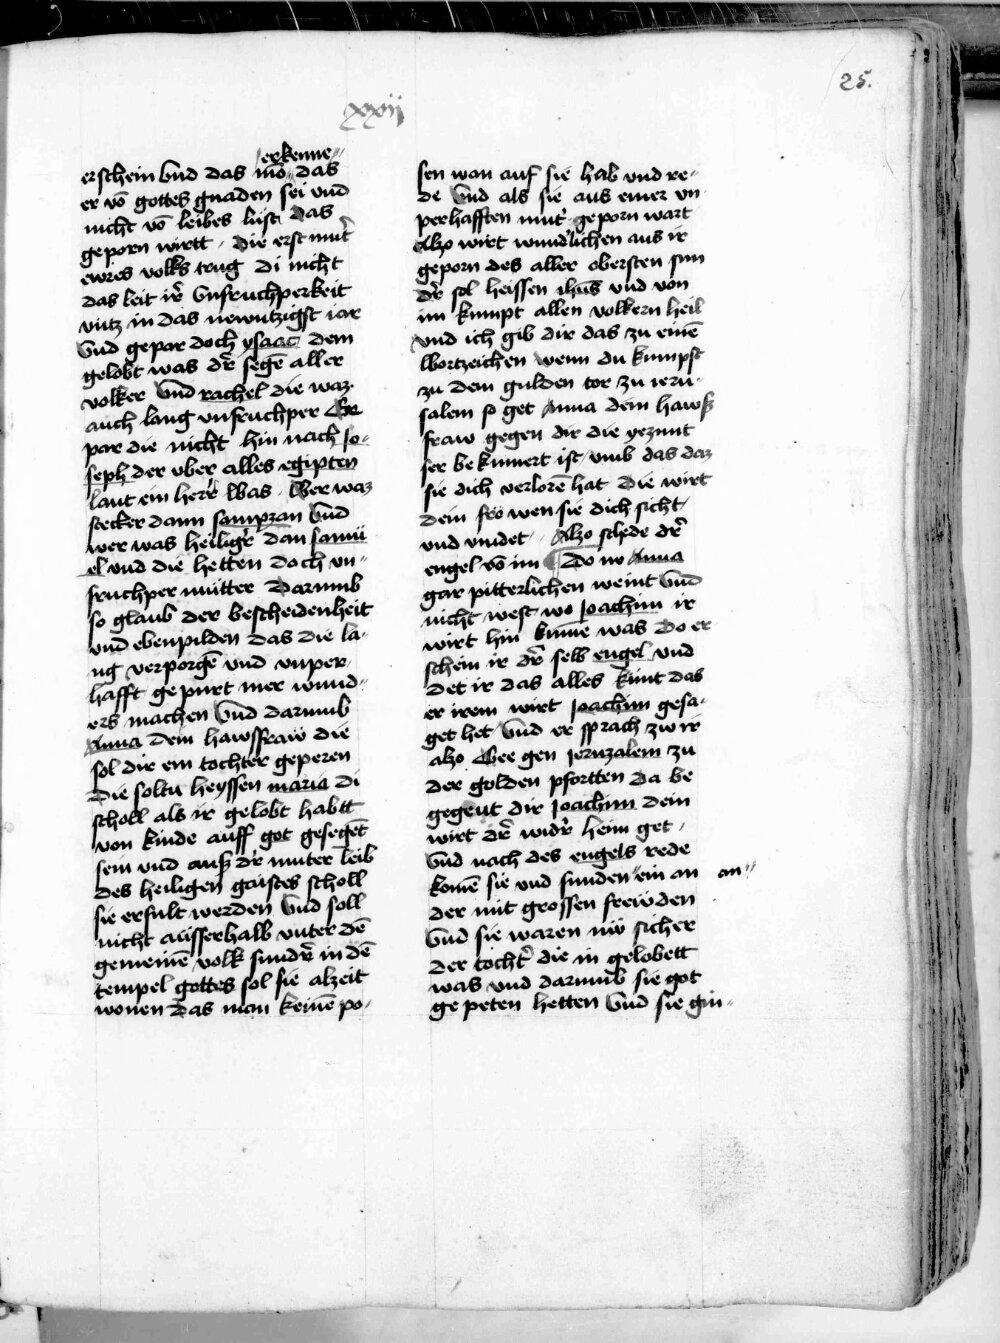 25.
xxii
erkenne
erschein vnd das mō das
er vō gottes gnaden sei vnd
nicht vō leibes lust das
geporn wirtt . die erst mut̄
ewres volks trug di nicht
das leit ir̄ vnfruchperkeit
vntz in das newntzigst iar
vnd gepar doch ysaac dem
gelobt was dr̄ segē aller
volker vnd rachel die waz
auch lang vnfruchper Ge
par die nicht hin nach Jo-
seph der vber alles egipten
lant ein herr̄ was . wer waz
stecker dann sampzan vnd
wer was heiligr̄ dan samū
el vnd die hetten doch vn-
fruchper mütter Darumb
so glaub der bescheidenheit
vnd ebenpilden das die la-
ng verporgē vnd vnper-
hafft gepurt mer wund-
ers machen vnd darumb
Anna dein hawsfraw die
sol dir ein tochter geperen
Die soltu heyssen maria di
scholl als ir gelobt habtt
von kinde auff got gesegēt
sein vnd auß dr̄ muter leib
des heiligen gaistes scholl
sie erfult werden vnd soll
nicht ausserhalb vnter dē
gemeinē volk sundr̄ in dē
tempel gottes sol sie alzeit
wonen das man keinē po-
sen wan auf sie hab vnd re-
de vnd als sie aus einer vn
perhafften mut̄ geporn wart
Alzo wirt wund̄lichen aus ir
geporn des aller obersten sun
dr̄ sol heissen ihūs vnd von
im kumpt allen volkern heil
vnd ich gib dir das zu einē
wortzeichen wenn du kumpst
zu dem gulden tor zu ieru-
salem so get Anna dein hawß
fraw gegen dir die yezunt
ser bekumert ist vmb das daz
sie dich verlorē hat die wirt
dein fro wen sie dich sicht
vnd vindet . Alzo schede dr̄
engel vō im Do nw Anna
gar pitterlichen weint vnd
nicht west wo Joachim ir
wirt hin kume was do er
schein ir dr̄ selb engel vnd
det ir das alles kunt das
er irem wirt Joachim gesa-
get het vnd er sprach zw ir
alzo Gee gen Jeruzalem zu
der golden pfortten da be
gegent dir Joachim dein
wirt dr̄ widr̄ heim get
vnd nach des engels rede
komē sie vnd funden ein an an
der mit grossen freẅden
vnd sie waren nw̄ sicher
der tocht̄ die in gelobett
was vnd darumb sie got
gepeten hetten vnd sie gin-